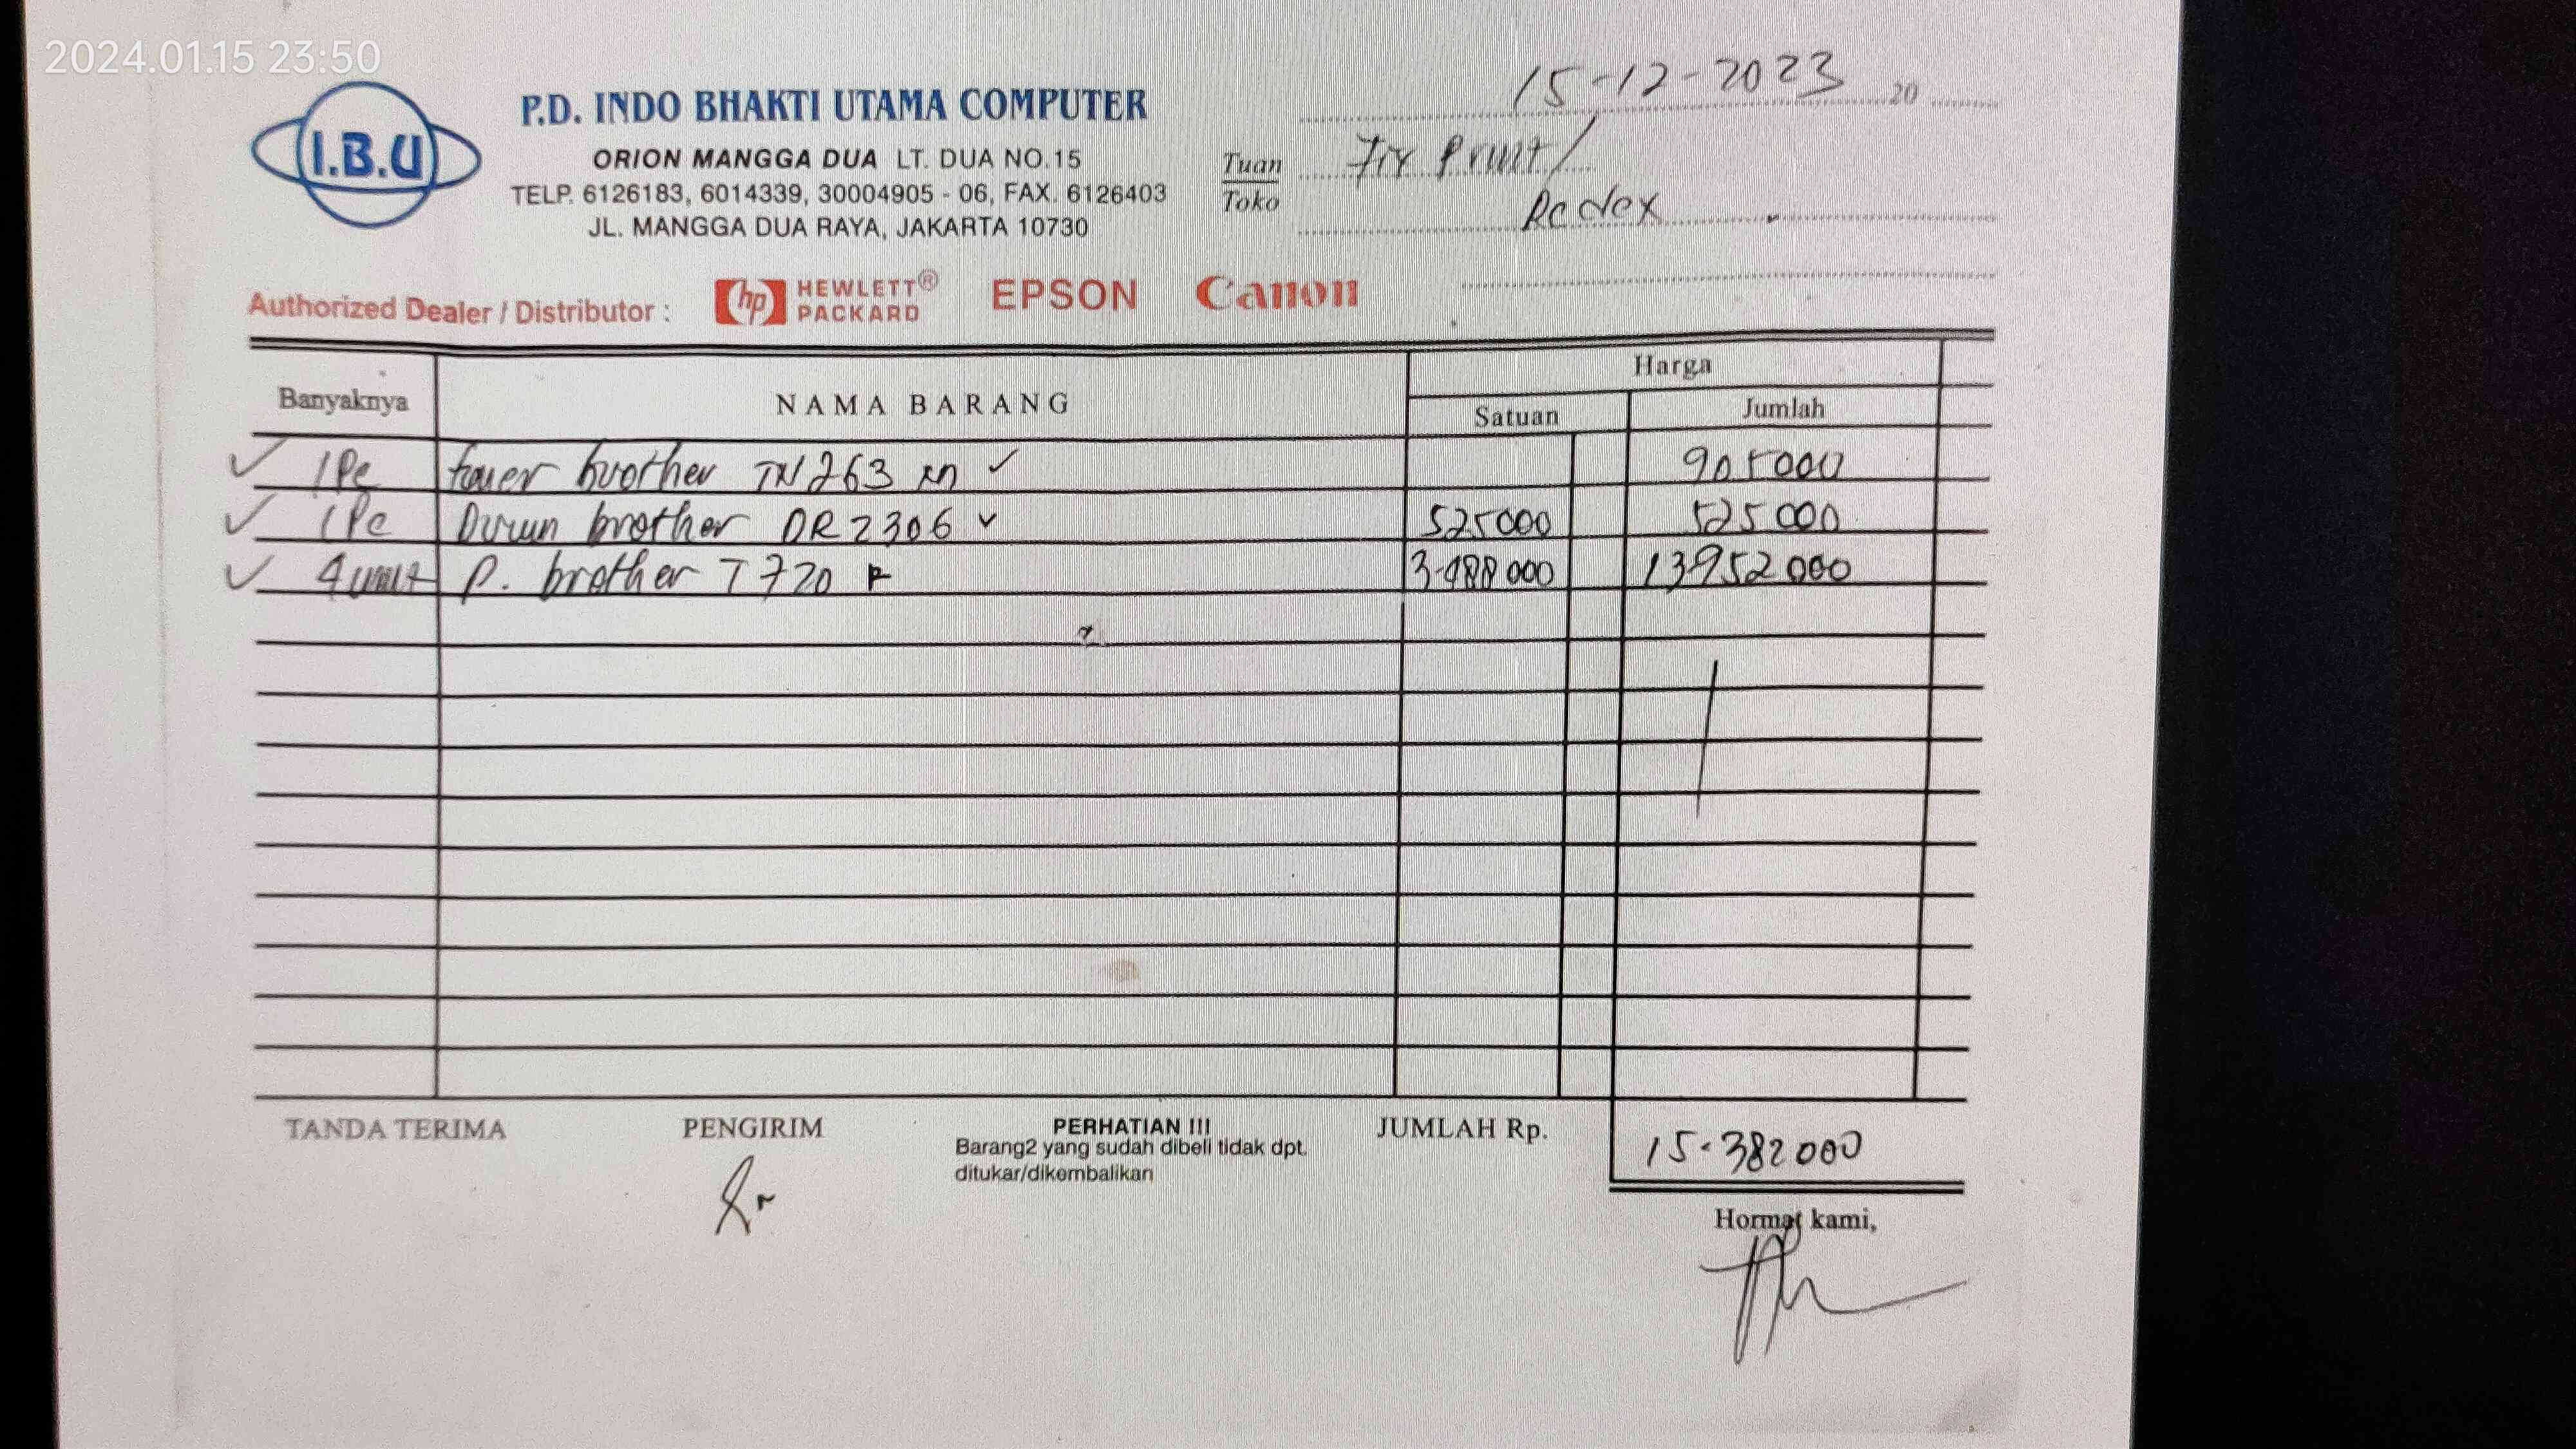 2024.01.15 23:50
I.B.U
P.D. INDO BHAKTI UTAMA COMPUTER
ORION MANGGA DUA LT. DUA NO.15
TELP. 6126183, 6014339, 30004905 - 06, FAX. 6126403
JL. MANGGA DUA RAYA, JAKARTA 10730
15-12-2023 20
Tuan
Toko
Print/
Redex
Authorized Dealer / Distributor : hp HEWLETT® PACKARD EPSON Canon
Banyaknya NAMA BARANG Harga
Satuan Jumlah
1 Pc toner brother TN 263 m 905000
1 Pc Drum brother DR 2306 525000 525000
4 unit P. brother T 720 3.488000 13952000
TANDA TERIMA PENGIRIM PERHATIAN !!! JUMLAH Rp. 15.382000
Barang2 yang sudah dibeli tidak dpt.
ditukar/dikembalikan
Hormat kami,